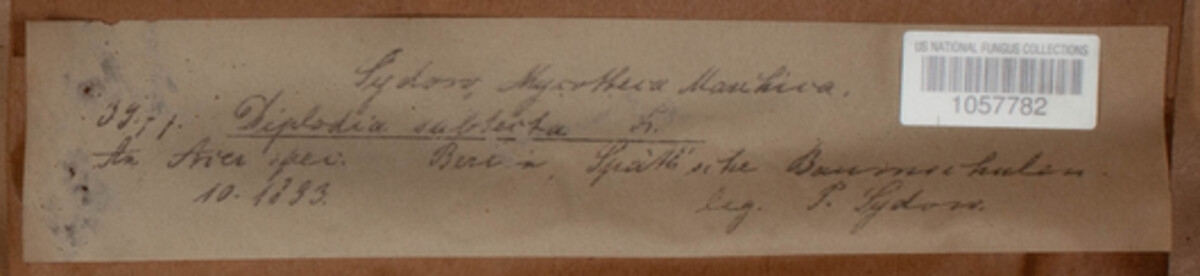 US NATIONAL FUNGUS COLLECTIONS
1057782
Sydow, Mycotheca Marchica.
3971. Diplodia subtecta Fr.
An Acer spec. Berlin, Späth'sche Baumschulen.
10. 1893. leg. P. Sydow.